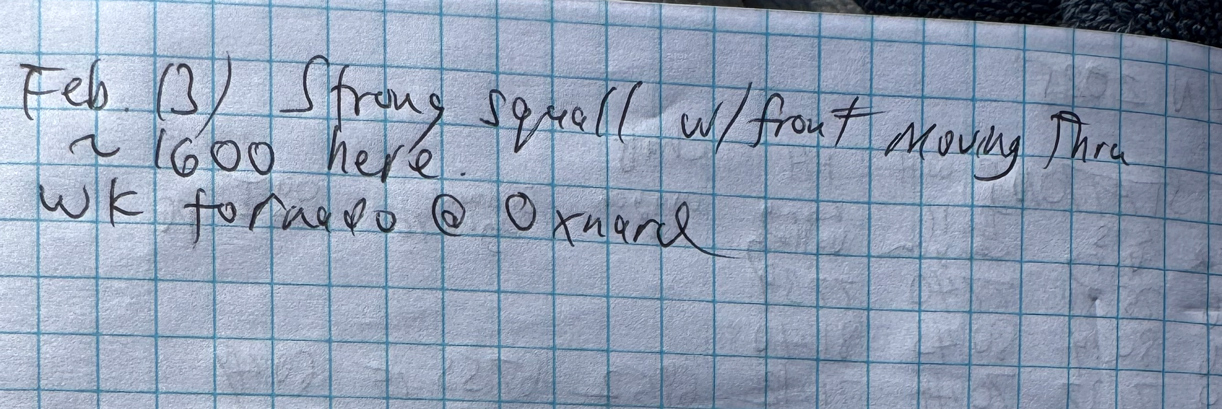 Feb. 13) Strong squall w/front moving Thru
~ 1600 here.
WK tornado @ Oxnard